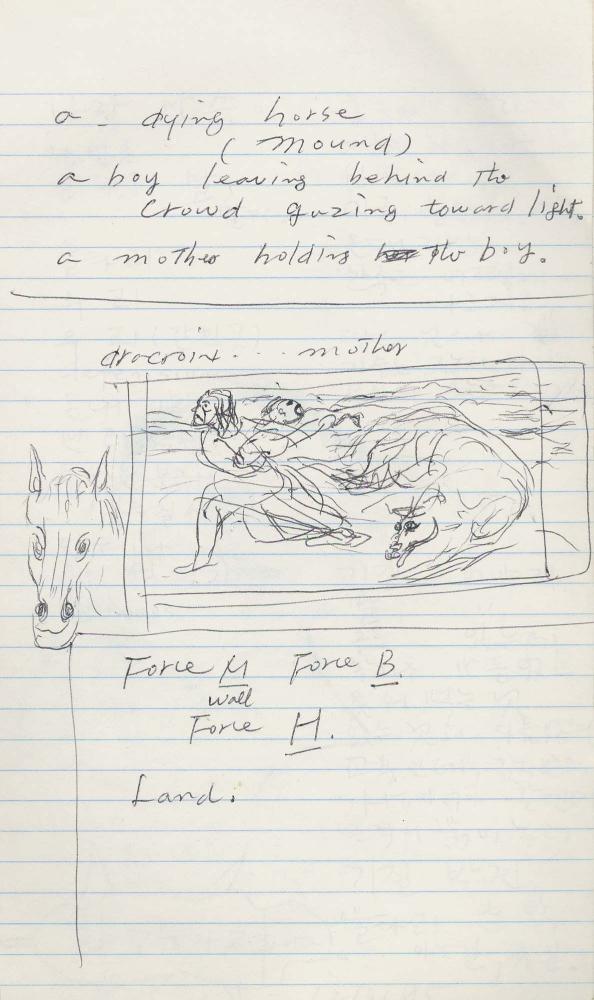 a - dying horse
(mound)
a boy leaving behind the
crowd gazing toward light.
a mother holding the boy.
dracroix... mother
Force M Force B.
wall
Force H.
Land.